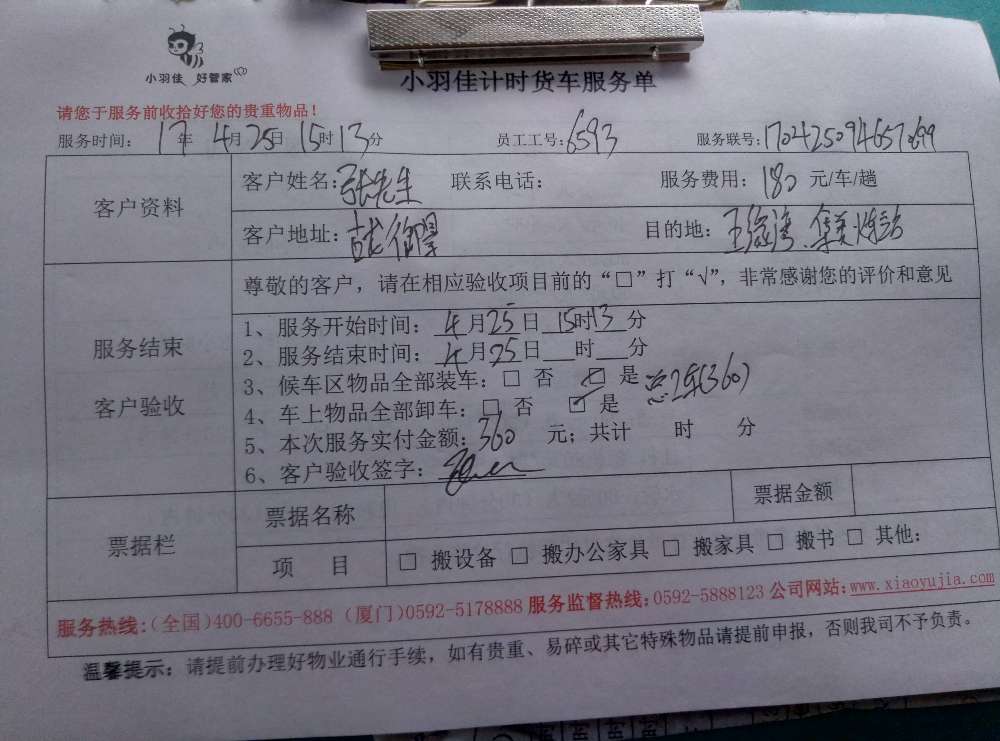 小羽佳 好管家
小羽佳计时货车服务单
请您于服务前收拾好您的贵重物品！
服务时间： 17年 4月25日 15时13分 员工工号：6593 服务联号：170425094657699
客户资料
客户姓名：张先生 联系电话： 服务费用：180 元/车/趟
客户地址： 目的地：
尊敬的客户，请在相应验收项目前的“□”打“√”，非常感谢您的评价和意见
服务结束
客户验收
1、服务开始时间： 4月25日 15时13分
2、服务结束时间： 4月25日 时 分
3、候车区物品全部装车：□ 否 ☑ 是 总2车(360)
4、车上物品全部卸车：□ 否 ☑ 是
5、本次服务实付金额：360 元；共计 时 分
6、客户验收签字：
票据栏
票据名称 票据金额
项 目 □ 搬设备 □ 搬办公家具 □ 搬家具 □ 搬书 □ 其他：
服务热线：（全国）400-6655-888（厦门）0592-5178888 服务监督热线：0592-5888123 公司网站：www.xiaoyujia.com
温馨提示：请提前办理好物业通行手续，如有贵重、易碎或其它特殊物品请提前申报，否则我司不予负责。